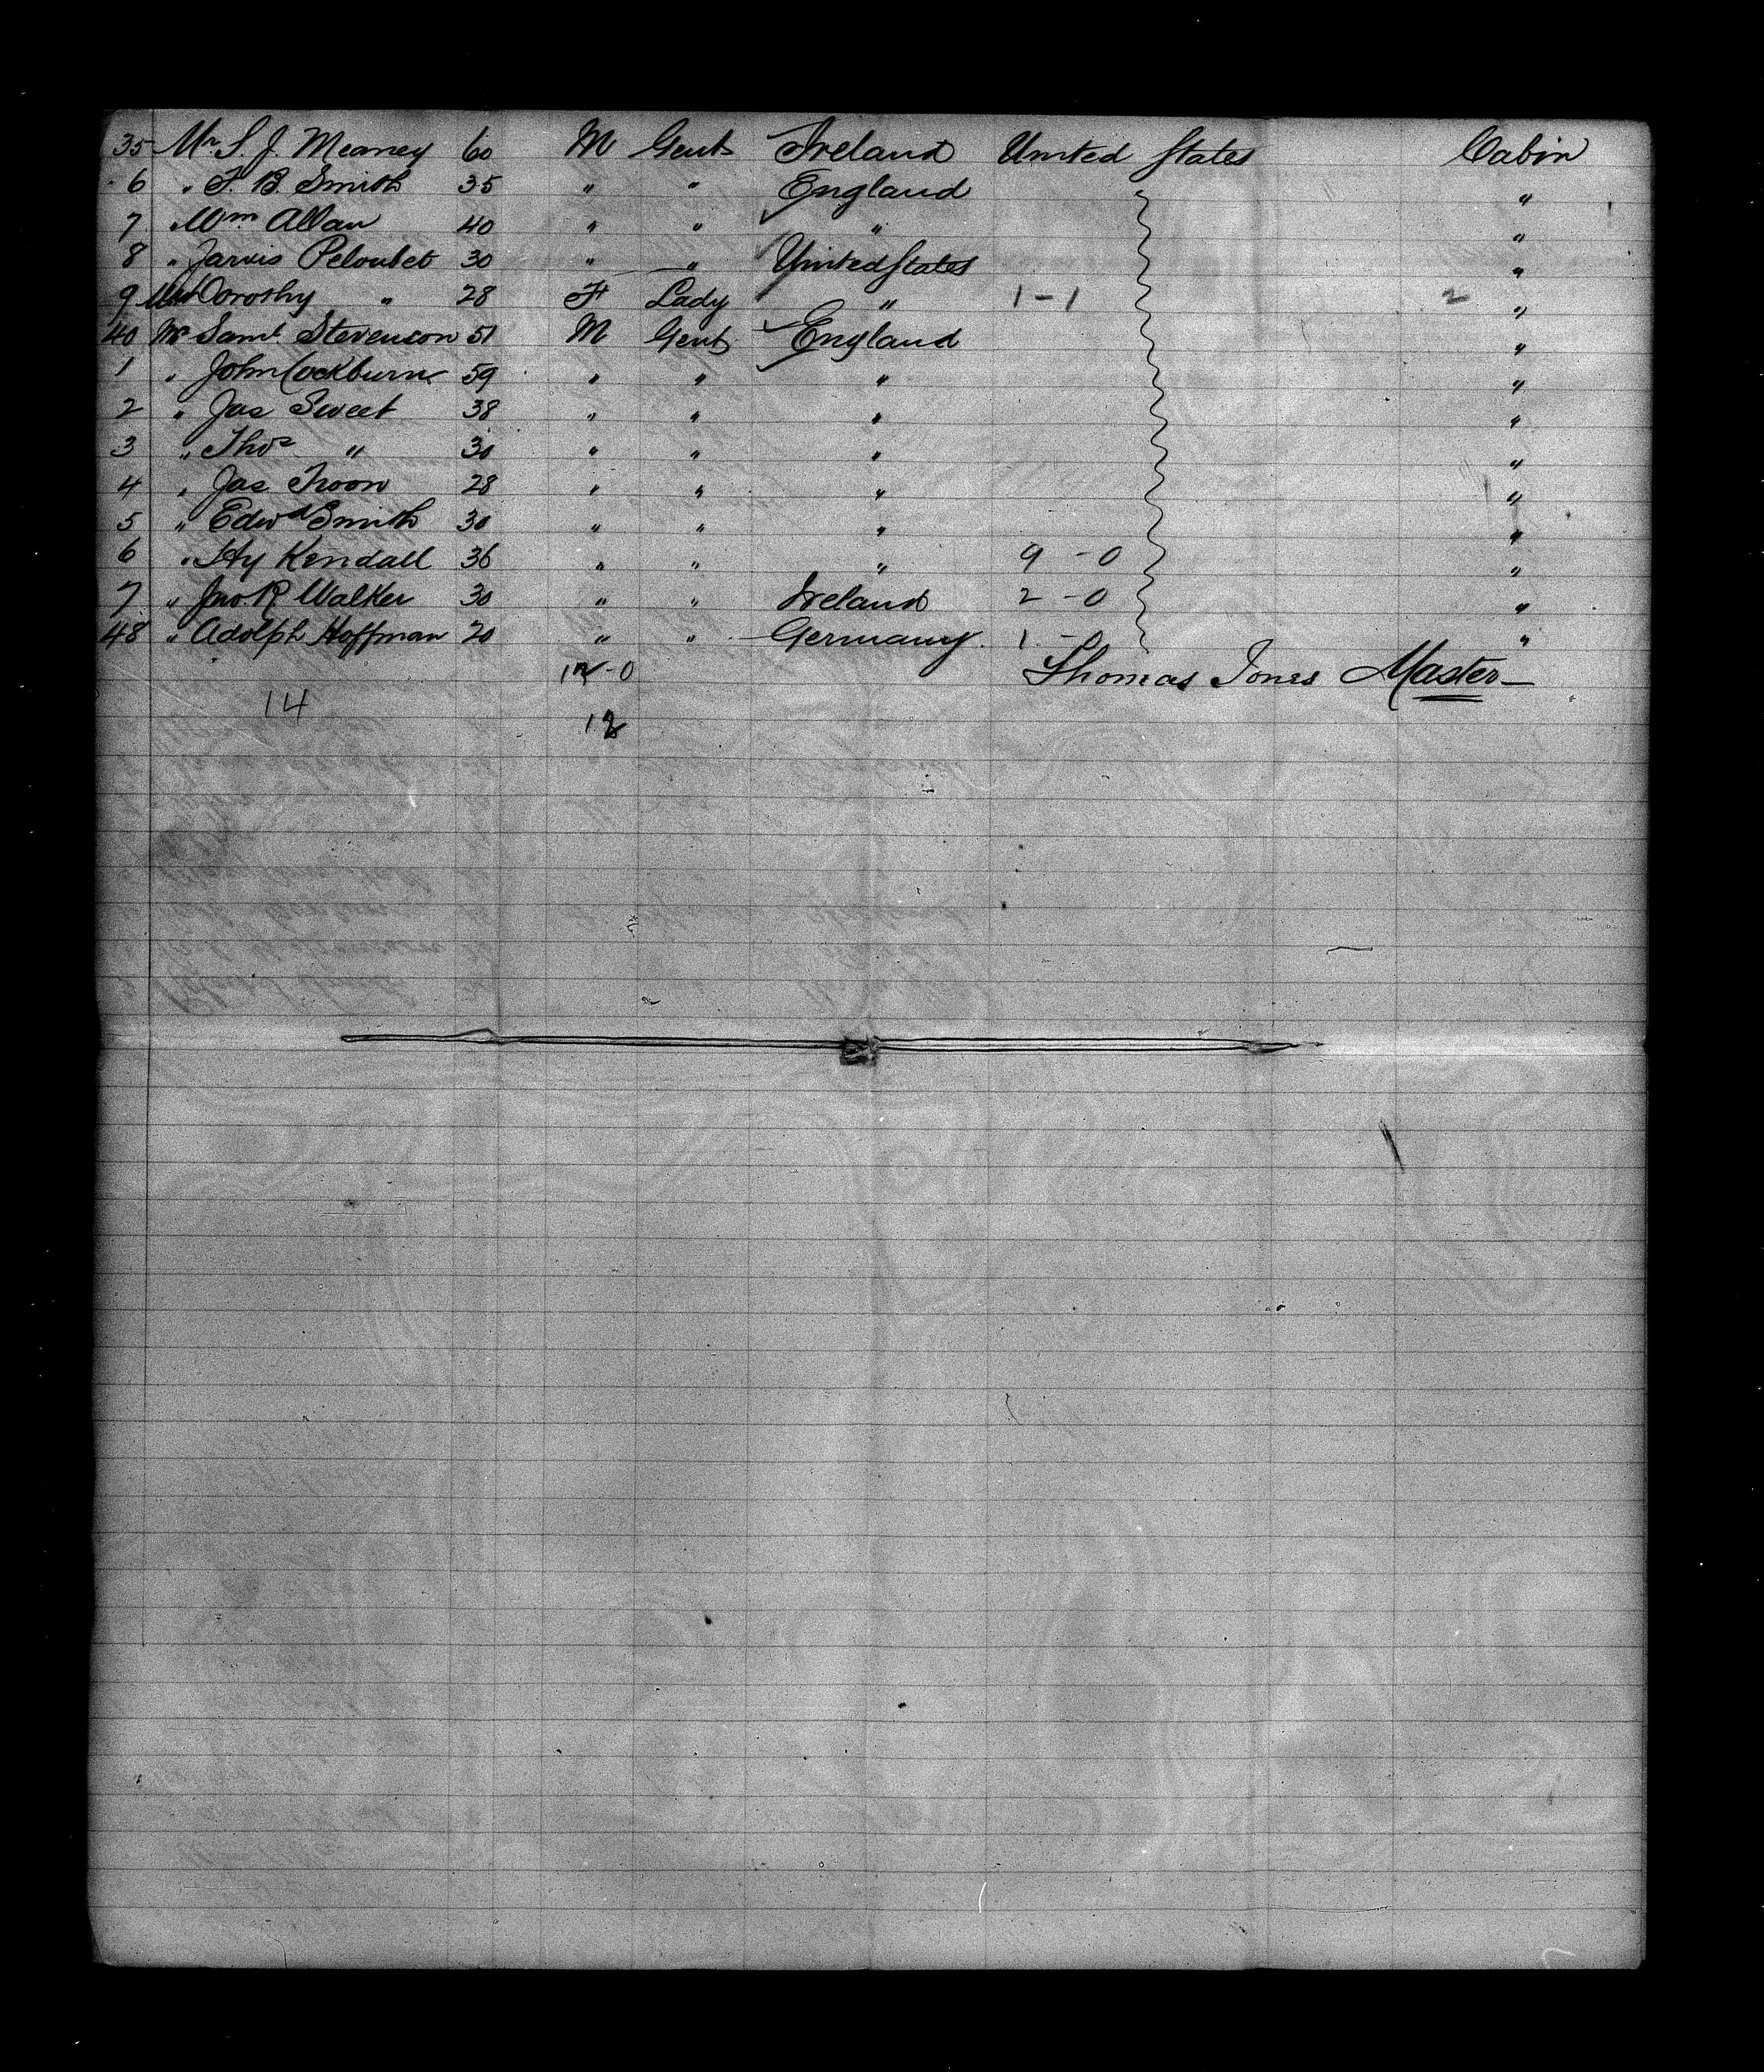 35 Mr. S. J. Meaney 60 M Gent Ireland United States Cabin
6 " F. B. Smith 35 " " England "
7 " Wm Allan 40 " " " "
8 " Jarvis Peloubet 30 " " United States "
9 Mrs Dorothy " 28 F Lady " 1 - 1 2 "
40 Mr Saml Stevenson 51 M Gent England "
1 " John Cockburn 59 " " " "
2 " Jas Sweet 38 " " " "
3 " Thos " 30 " " " "
4 " Jas Troon 28 " " " "
5 " Edwd Smith 30 " " " "
6 " Hy Kendall 36 " " " 9 - 0 "
7 " Jno. R Walker 30 " " Ireland 2 - 0 "
48 " Adolph Hoffman 20 " " Germany 1 - 0 "
12-0 Thomas Jones Master
14
12